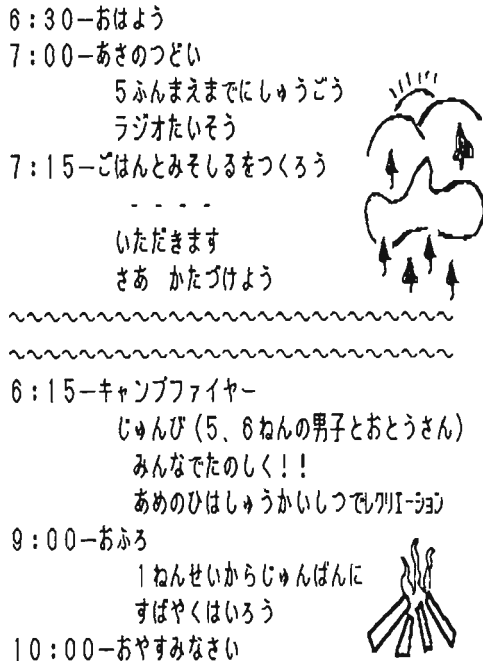 6:30−おはよう
7:00−あさのつどい
5ふんまえまでにしゅうごう
ラジオたいそう
7:15−ごはんとみそしるをつくろう
- - - -
いただきます
さあ かたづけよう
~~~~~~~~~~~~~~~~~~~~~~~~~~~~~~
~~~~~~~~~~~~~~~~~~~~~~~~~~~~~~
6:15−キャンプファイヤー
じゅんび(5、6ねんの男子とおとうさん)
みんなでたのしく!!
あめのひはしゅうかいしつでレクリエーション
9:00−おふろ
1ねんせいからじゅんばんに
すばやくはいろう
10:00−おやすみなさい